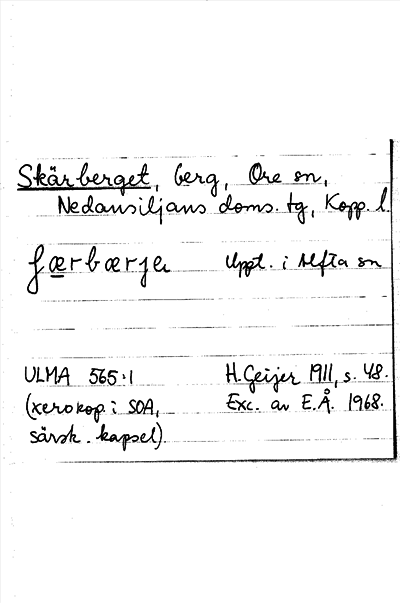 Skärberget, berg, Ore sn,
Nedansiljans doms. tg, Kopp. l.
ʃærbærje Uppt. i Alfta sn
ULMA 565:1 H. Geijer 1911, s. 48.
(xerokop. i SOA, Exc. av E.Å. 1968.
särsk. kapsel).